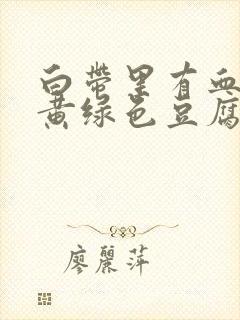 白带里有血
黄绿色豆腐
廖丽萍